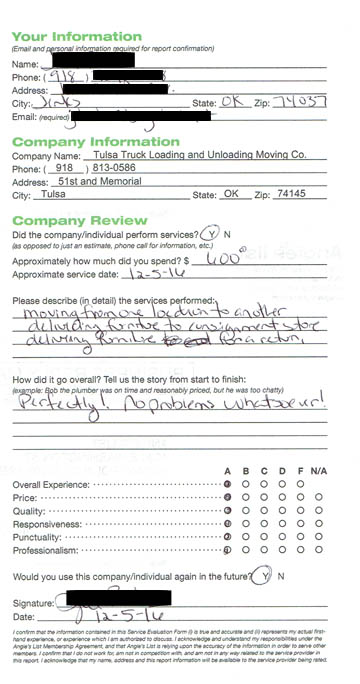 Your Information
(Email and personal information required for report confirmation)
Name:
Phone: ( 918 )
Address:
City: Jinks State: OK Zip: 74037
Email: (required)
Company Information
Company Name: Tulsa Truck Loading and Unloading Moving Co.
Phone: ( 918 ) 813-0586
Address: 51st and Memorial
City: Tulsa State: OK Zip: 74145
Company Review
Did the company/individual perform services? Y N
(as opposed to just an estimate, phone call for information, etc.)
Approximately how much did you spend? $ 400
Approximate service date: 12-5-16
Please describe (in detail) the services performed:
moving from one location to another
delivering furniture to consignment store
delivering furniture for a return.
How did it go overall? Tell us the story from start to finish:
(example: Bob the plumber was on time and reasonably priced, but he was too chatty)
Perfectly! No problems whatsoever!
A B C D F N/A
Overall Experience:
Price:
Quality:
Responsiveness:
Punctuality:
Professionalism:
Would you use this company/individual again in the future? Y N
Signature:
Date: 12-5-16
I confirm that the information contained in this Service Evaluation Form (i) is true and accurate and (ii) represents my actual first-
hand experience, or experience which I am authorized to discuss. I acknowledge and understand my responsibilities under the
Angie's List Membership Agreement, and that Angie's List is relying upon the accuracy of the information in order to serve other
members. I confirm that I do not work for, am not in competition with, and am not in any way related to the service provider in
this report. I acknowledge that my name, address and this report information will be available to the service provider being rated.